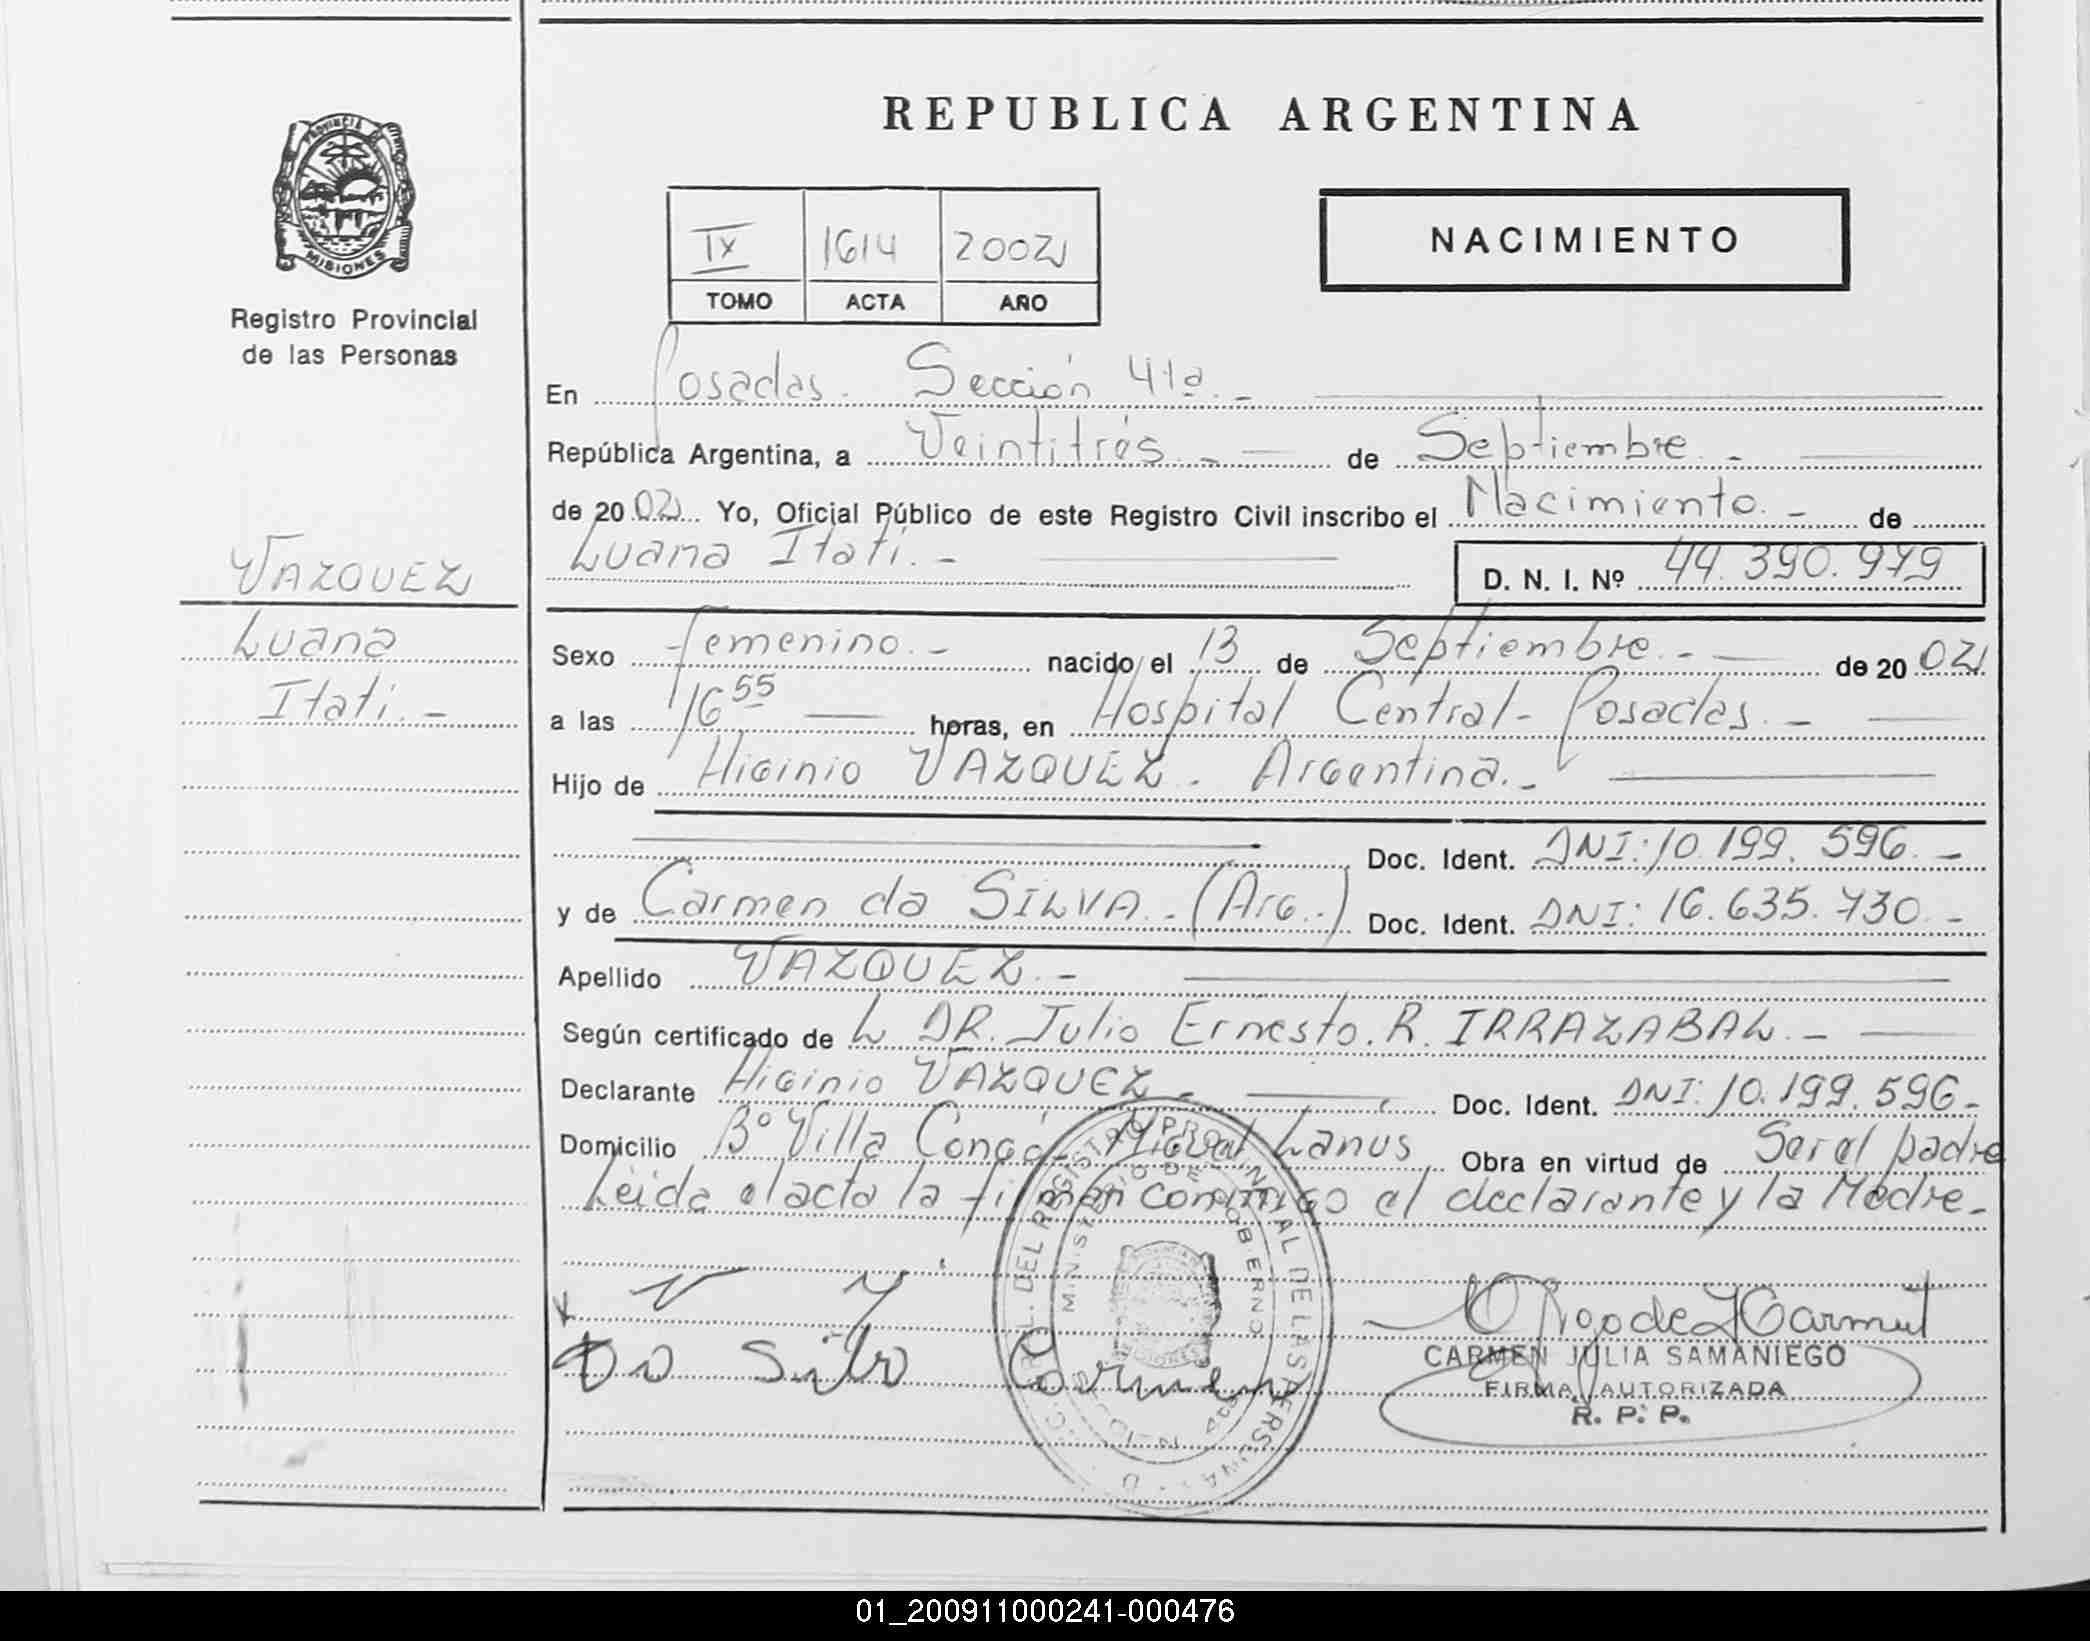 REPUBLICA ARGENTINA
PROVINCIA
MISIONES
Registro Provincial
de las Personas
IX 1614 2002
TOMO ACTA AÑO
NACIMIENTO
En Posadas. Sección 4ta.-
República Argentina, a Veintitrés.- de Septiembre.-
de 2002. Yo, Oficial Público de este Registro Civil inscribo el Nacimiento.- de
Luana Itatí.- D. N. I. Nº 44.390.979
VAZQUEZ
Luana
Itatí.-
Sexo femenino.- nacido el 13 de Septiembre.- de 2002
a las 16 55 horas, en Hospital Central- Posadas.-
Hijo de Higinio VAZQUEZ. Argentina.-
Doc. Ident. DNI: 10.199.596.-
y de Carmen da SILVA.-(Arg.) Doc. Ident. DNI: 16.635.730.-
Apellido VAZQUEZ.-
Según certificado de L DR. Julio Ernesto. R. IRRAZABAL.-
Declarante Higinio VAZQUEZ.- Doc. Ident. DNI: 10.199.596-
Domicilio Bº Villa Miguel Lanus Obra en virtud de Ser el padre
Leída el acta la firman conmigo el declarante y la Madre.-
Da Silva Carmen
MINISTERIO DE GOBIERNO
CARMEN JULIA SAMANIEGO
FIRMA AUTORIZADA
R. P. P.
01_200911000241-000476